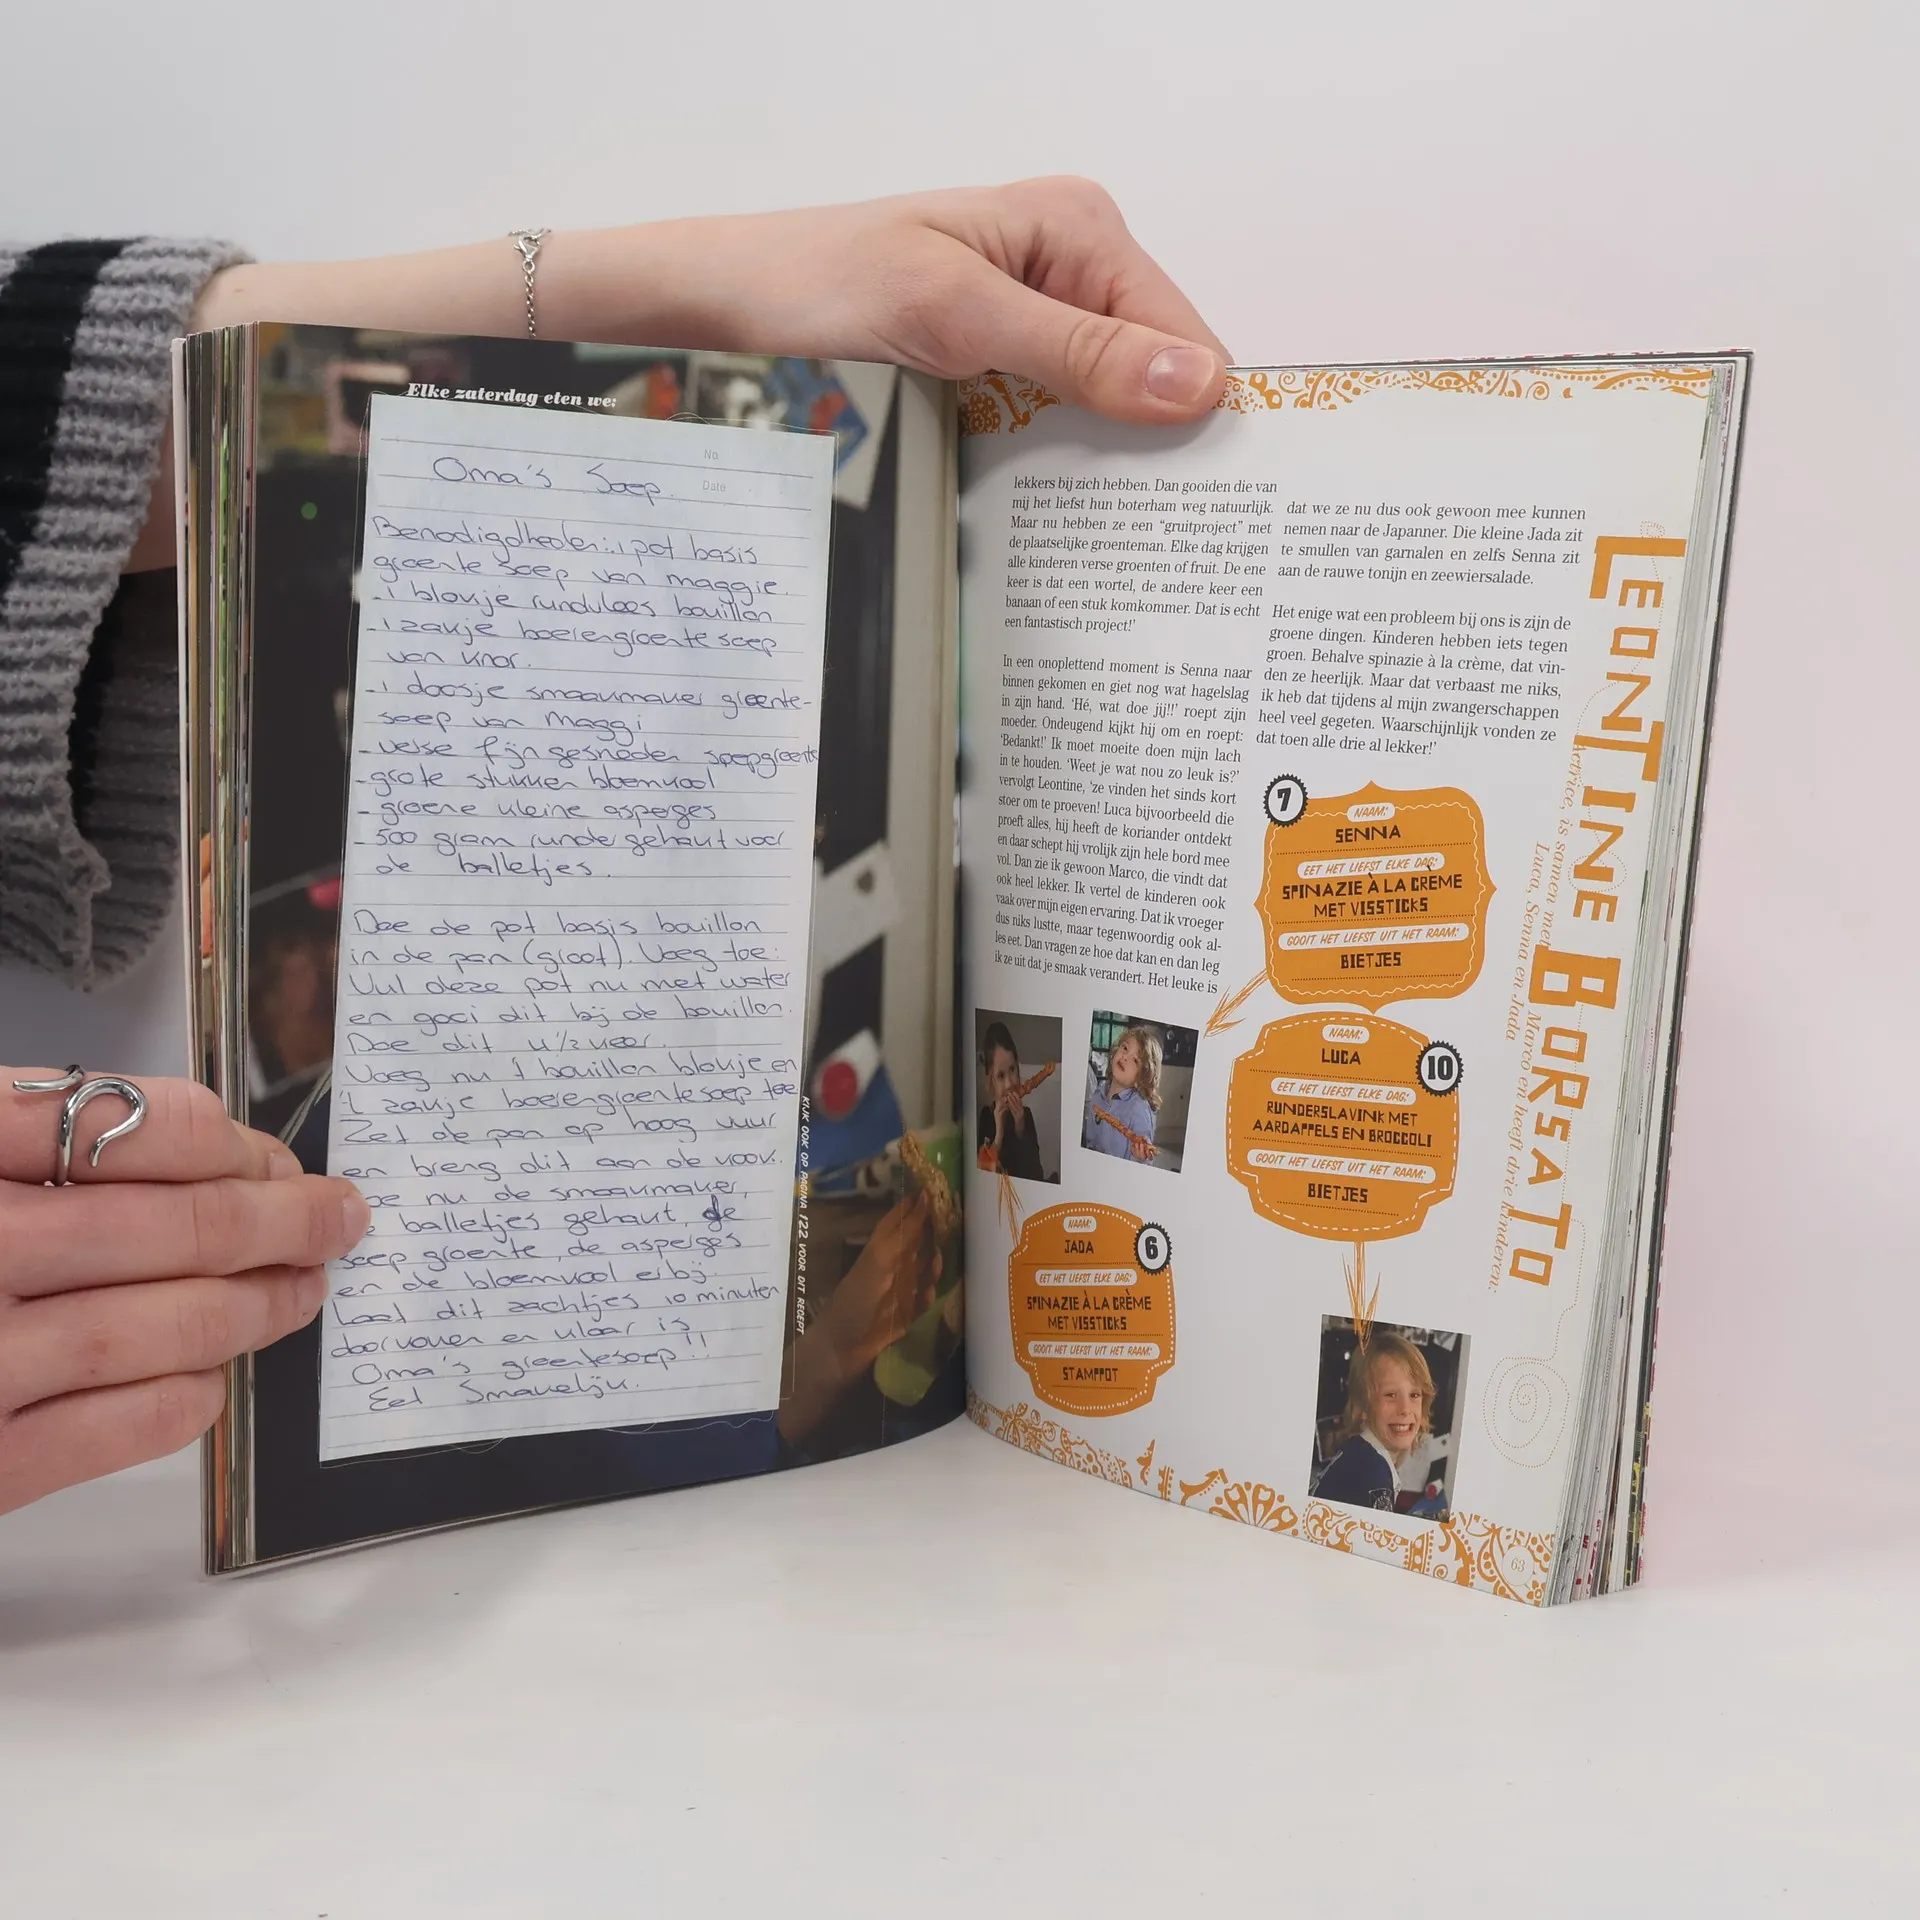 Elke zaterdag eten we:
No
Date
Oma's Soep.
Benodigdheden: 1 pot basis
groente soep van maggie.
- 1 blokje rundvlees bouillon
- 1 zakje boerengroente soep
van Knor.
- 1 doosje smaakmaker groente-
soep van Maggi
- verse fijn gesneden soepgroente
- grote stukken bloemkool
- groene kleine asperges
- 500 gram runder gehakt voor
de balletjes.
Doe de pot basis bouillon
in de pan (groot). Voeg toe:
Vul deze pot nu met water
en gooi dit bij de bouillon.
Doe dit 4½ keer.
Voeg nu 1 bouillon blokje en
1 zakje boerengroentesoep toe
Zet de pan op hoog vuur
en breng dit aan de kook.
nu de smaakmaker,
balletjes gehakt, de
soep groente, de asperges
en de bloemkool erbij.
Laat dit zachtjes 10 minuten
doorkoken en klaar is
Oma's groentesoep!!
Eet Smakelijk.
KIJK OOK OP PAGINA 122 VOOR DIT RECEPT
lekkers bij zich hebben. Dan gooiden die van
mij het liefst hun boterham weg natuurlijk.
Maar nu hebben ze een “gruitproject” met
de plaatselijke groenteman. Elke dag krijgen
alle kinderen verse groenten of fruit. De ene
keer is dat een wortel, de andere keer een
banaan of een stuk komkommer. Dat is echt
een fantastisch project!’
In een onoplettend moment is Senna naar
binnen gekomen en giet nog wat hagelslag
in zijn hand. ‘Hé, wat doe jij!!’ roept zijn
moeder. Ondeugend kijkt hij om en roept:
‘Bedankt!’ Ik moet moeite doen mijn lach
in te houden. ‘Weet je wat nou zo leuk is?’
vervolgt Leontine, ‘ze vinden het sinds kort
stoer om te proeven! Luca bijvoorbeeld die
proeft alles, hij heeft de koriander ontdekt
en daar schept hij vrolijk zijn hele bord mee
vol. Dan zie ik gewoon Marco, die vindt dat
ook heel lekker. Ik vertel de kinderen ook
vaak over mijn eigen ervaring. Dat ik vroeger
dus niks lustte, maar tegenwoordig ook al-
les eet. Dan vragen ze hoe dat kan en dan leg
ik ze uit dat je smaak verandert. Het leuke is
dat we ze nu dus ook gewoon mee kunnen
nemen naar de Japanner. Die kleine Jada zit
te smullen van garnalen en zelfs Senna zit
aan de rauwe tonijn en zeewiersalade.
Het enige wat een probleem bij ons is zijn de
groene dingen. Kinderen hebben iets tegen
groen. Behalve spinazie à la crème, dat vin-
den ze heerlijk. Maar dat verbaast me niks,
ik heb dat tijdens al mijn zwangerschappen
heel veel gegeten. Waarschijnlijk vonden ze
dat toen alle drie al lekker!’
7
NAAM:
SENNA
EET HET LIEFST ELKE DAG:
SPINAZIE À LA CRÈME
MET VISSTICKS
GOOIT HET LIEFST UIT HET RAAM:
BIETJES
10
NAAM:
LUCA
EET HET LIEFST ELKE DAG:
RUNDERSLAVINK MET
AARDAPPELS EN BROCCOLI
GOOIT HET LIEFST UIT HET RAAM:
BIETJES
6
NAAM:
JADA
EET HET LIEFST ELKE DAG:
SPINAZIE À LA CRÈME
MET VISSTICKS
GOOIT HET LIEFST UIT HET RAAM:
STAMPPOT
LEONTINE BORSATO
Actrice, is samen met Marco en heeft drie kinderen:
Luca, Senna en Jada
63